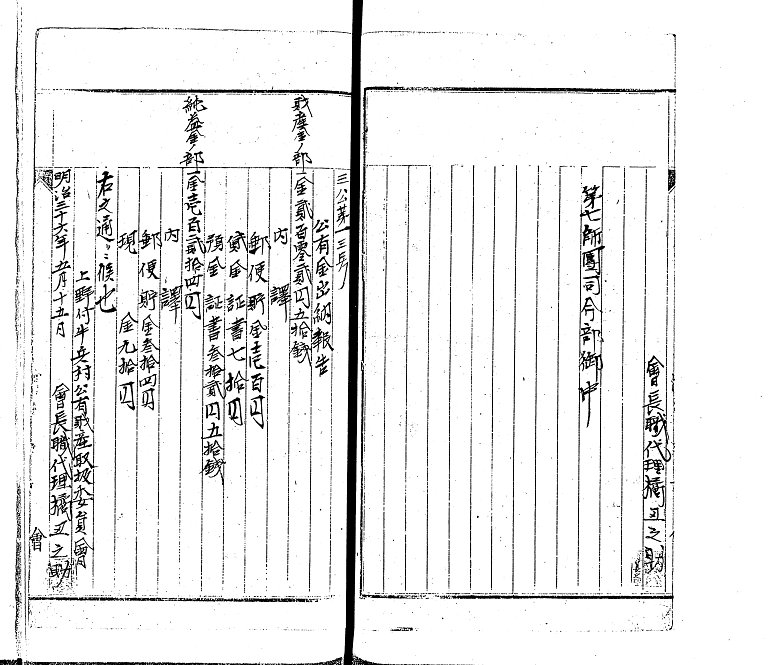 會長職代理橘五之助
第七師團司令部御中
三公第一三号
公有金出納報告
財産金ノ部 一金貳百零貳円五拾銭
内譯
郵便貯金壱百円
貸金証書七拾円
預金証書参拾貳円五拾銭
純益金ノ部 一金壱百貳拾四円
内譯
郵便貯金参拾四円
現金九拾円
右之通ニ候也
上野付牛兵村公有財産取扱委員會
明治三十六年五月十五日 會長職代理橘五之助
會